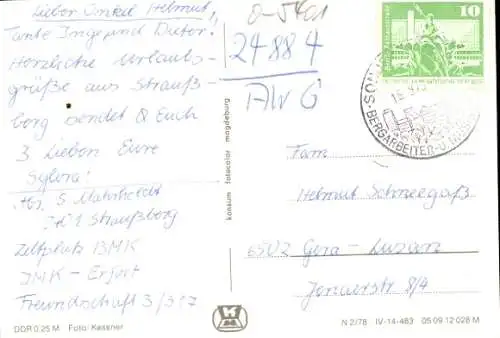 Lieber Onkel Helmut,
Tante Inge und Dieter!
Herzliche Urlaubs-
grüße aus Strauß-
berg sendet Euch
3 Lieben Eure
Sylvia!
Abs. S. Mahrholdt
Straußberg
Zeltplatz BMK
IMK - Erfurt
Freundschaft 3/317
DDR 0.25 M Foto: Kessner
konsum fotocolor magdeburg
0-5401
24884
AWG
10
BERGARBEITER-U.
Fam
Helmut Schneegaß
6502 Gera - Lusan
Jenaer str. 8/4
N 2/78 IV-14-483 05 09 12 028 M